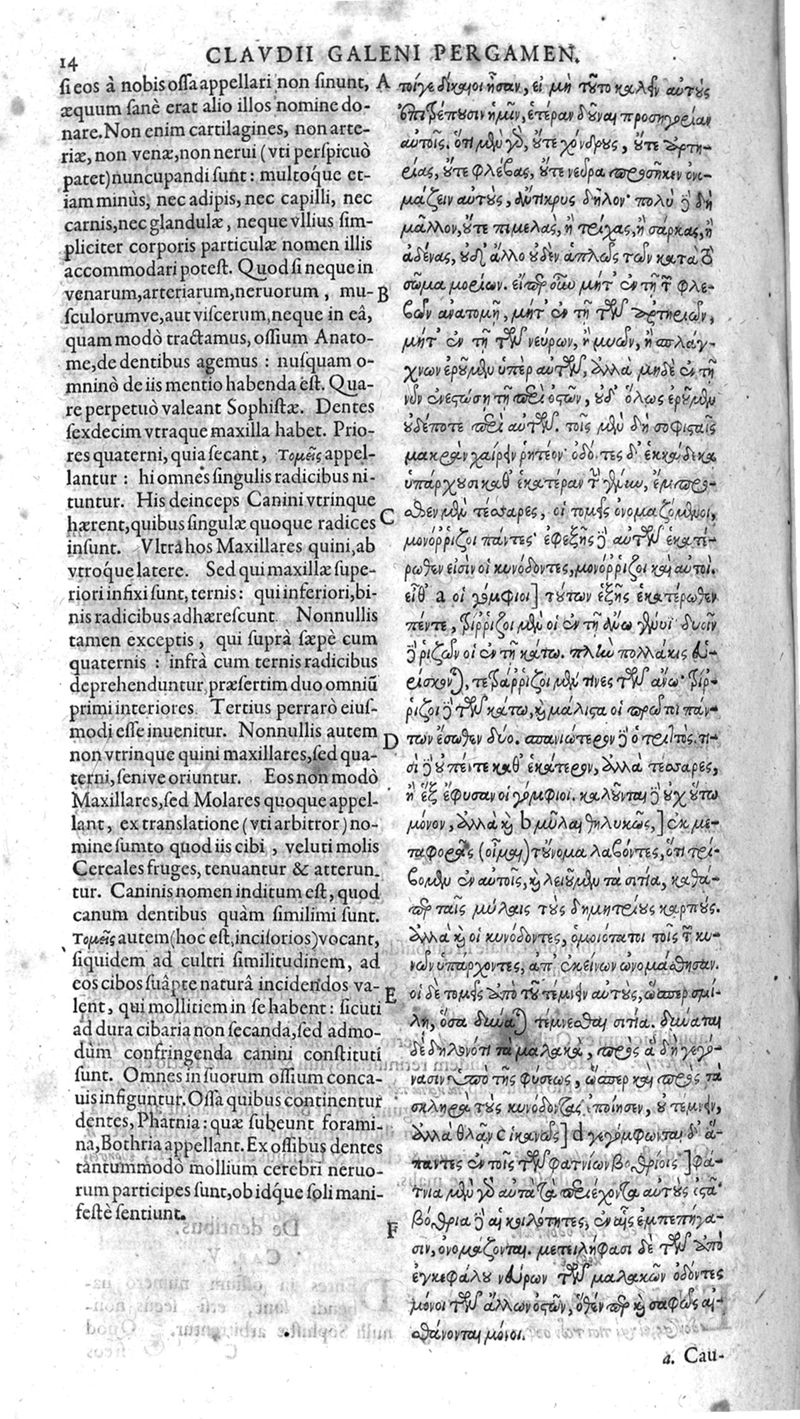 14 CLAVDII GALENI PERGAMEN.
ſi eos à nobis oſſa appellari non ſinunt,
æquum ſanè erat alio illos nomine do-
nare. Non enim cartilagines, non arte-
riæ, non venæ, non nerui (vti perſpicuò
patet) nuncupandi ſunt: multóque et-
iam minùs, nec adipis, nec capilli, nec
carnis, nec glandulæ, neque vllius ſim-
pliciter corporis particulæ nomen illis
accommodari poteſt. Quòd ſi neque in
venarum, arteriarum, neruorum, mu-
ſculorumve, aut viſcerum, neque in eâ,
quam modò tractamus, oſſium Anato-
me, de dentibus agemus: nuſquam o-
mninò de iis mentio habenda eſt. Qua-
re perpetuò valeant Sophiſtæ. Dentes
ſexdecim vtraque maxilla habet. Prio-
res quaterni, quia ſecant, Τομεῖς appel-
lantur: hi omnes ſingulis radicibus ni-
tuntur. His deinceps Canini vtrinque
hærent, quibus ſingulæ quoque radices
inſunt. Vltra hos Maxillares quini, ab
vtroque latere. Sed qui maxillæ ſupe-
riori infixi ſunt, ternis: qui inferiori, bi-
nis radicibus adhæreſcunt. Nonnullis
tamen exceptis, qui ſuprà ſæpè cum
quaternis: infrà cum ternis radicibus
deprehenduntur, præſertim duo omniū
primi interiores. Tertius perrarò eiuſ-
modi eſſe inuenitur. Nonnullis autem
non vtrinque quini maxillares, ſed qua-
terni, ſenive oriuntur. Eos non modò
Maxillares, ſed Molares quoque appel-
lant, ex translatione (vti arbitror) no-
mine ſumto quod iis cibi, veluti molis
Cereales fruges, tenuantur & atterun-
tur. Caninis nomen inditum eſt, quod
canum dentibus quàm ſimilimi ſunt.
Τομεῖς autem (hoc eſt, inciſorios) vocant,
ſiquidem ad cultri ſimilitudinem, ad
eos cibos ſuâpte naturâ incidendos va-
lent, qui mollitiem in ſe habent: ſicuti
ad dura cibaria non ſecanda, ſed admo-
dùm confringenda canini conſtituti
ſunt. Omnes in ſuorum oſſium conca-
uis infiguntur. Oſſa quibus continentur
dentes, Phatnia: quæ ſubeunt forami-
na, Bothria appellant. Ex oſſibus dentes
tantummodo mollium cerebri neruo-
rum participes ſunt, ob idque ſoli mani-
feſtè ſentiunt.
A
B
C
D
E
F
τοίγε δίκαιοι ἦσαν, εἰ μὴ τοῦτο καλεῖν αὐτοὺς
ἐπιτρέπουσιν ἡμῖν, ἑτέραν δοῦναι προσηγορίαν
αὐτοῖς. ὅτι μὲν γὰρ, οὔτε χόνδρους, οὔτε ἀρτη-
ρίας, οὔτε φλέβας, οὔτε νεῦρα προσῆκεν ὀνο-
μάζειν αὐτοὺς, ἄντικρυς δῆλον· πολὺ δὲ δὴ
μᾶλλον, οὔτε πιμελὰς, ἢ τρίχας, ἢ σάρκας, ἢ
ἀδένας, οὐδ' ἄλλο οὐδὲν ἁπλῶς τῶν κατὰ τὸ
σῶμα μορίων. εἴπερ οὖν μήτ' ἐν τῇ τῶν φλε-
βῶν ἀνατομῇ, μήτ' ἐν τῇ τῶν ἀρτηριῶν,
μήτ' ἐν τῇ τῶν νεύρων, ἢ μυῶν, ἢ σπλάγ-
χνων ἐροῦμεν ὑπὲρ αὐτῶν, ἀλλὰ μηδὲ ἐν τῇ
νῦν ἐνεστώσῃ τῇ περὶ ὀστῶν, οὐδ' ὅλως ἐροῦμεν
οὐδέποτε περὶ αὐτῶν. τοῖς μὲν δὴ σοφισταῖς
μακρὰν χαίρειν ῥητέον· ὀδόντες δ' ἑκκαίδεκα
ὑπάρχουσι καθ' ἑκατέραν τὴν γένυν, ἔμπρο-
σθεν μὲν τέσσαρες, οἱ τομεῖς ὀνομαζόμενοι,
μονόρριζοι πάντες· ἐφεξῆς δὲ αὐτῶν ἑκατέ-
ρωθεν εἰσὶν οἱ κυνόδοντες, μονόρριζοι καὶ αὐτοί.
εἶθ' a οἱ γόμφιοι] τούτων ἑξῆς ἑκατέρωθεν
πέντε, τρίρριζοι μὲν οἱ ἐν τῇ ἄνω γένυι· δυοῖν
δὲ ῥιζῶν οἱ ἐν τῇ κάτω. πλὴν πολλάκις εὑ-
ρίσκονται, τετράρριζοι μέν τινες τῶν ἄνω· τρίρ-
ριζοι δὲ τῶν κάτω, καὶ μάλιστα οἱ πρῶτοι πάν-
των ἔσωθεν δύο. σπανιώτερον δὲ ὁ τρίτος. τι-
σὶ δὲ οὐ πέντε καθ' ἑκάτερον, ἀλλὰ τέσσαρες,
ἢ ἓξ ἔφυσαν οἱ γόμφιοι. καλοῦνται δὲ οὐχ οὕτω
μόνον, ἀλλὰ καὶ b μύλαι θηλυκῶς,] ἐκ με-
ταφορᾶς (οἶμαι) τοὔνομα λαβόντες, ὅτι τρί-
βομεν ἐν αὐτοῖς, καὶ λειοῦμεν τὰ σιτία, καθά-
περ ταῖς μύλαις τοὺς δημητρίους καρπούς.
ἀλλὰ καὶ οἱ κυνόδοντες, ὁμοιότατοι τοῖς τῶν κυ-
νῶν ὑπάρχοντες, ἀπ' ἐκείνων ὠνομάσθησαν.
οἱ δὲ τομεῖς ἀπὸ τοῦ τέμνειν αὐτοὺς, ὥσπερ σμί-
λη, ὅσα δύναται τέμνεσθαι σιτία. δύναται
δὲ δηλονότι τὰ μαλακὰ, πρὸς ἃ δὴ γεγό-
νασιν ὑπὸ τῆς φύσεως, ὥσπερ καὶ πρὸς τὰ
σκληρὰ τοὺς κυνόδοντας ἐποίησεν, οὐ τέμνειν,
ἀλλὰ θλᾷν c ἱκανῶς] d γεγόμφωνται δ' ἅ-
παντες ἐν τοῖς τῶν φατνίων βοθρίοις] φά-
τνια μὲν γὰρ αὐτὰ τὰ περιέχοντα αὐτοὺς ὀστᾶ·
βόθρια δὲ αἱ κοιλότητες, ἐν αἷς ἐμπεπήγα-
σιν, ὀνομάζονται. μετειλήφασι δὲ τῶν ἀπὸ
ἐγκεφάλου νεύρων τῶν μαλακῶν ὀδόντες
μόνοι τῶν ἄλλων ὀστῶν, ὅθεν περ καὶ σαφῶς αἰ-
σθάνονται μόνοι.
a. Cau-